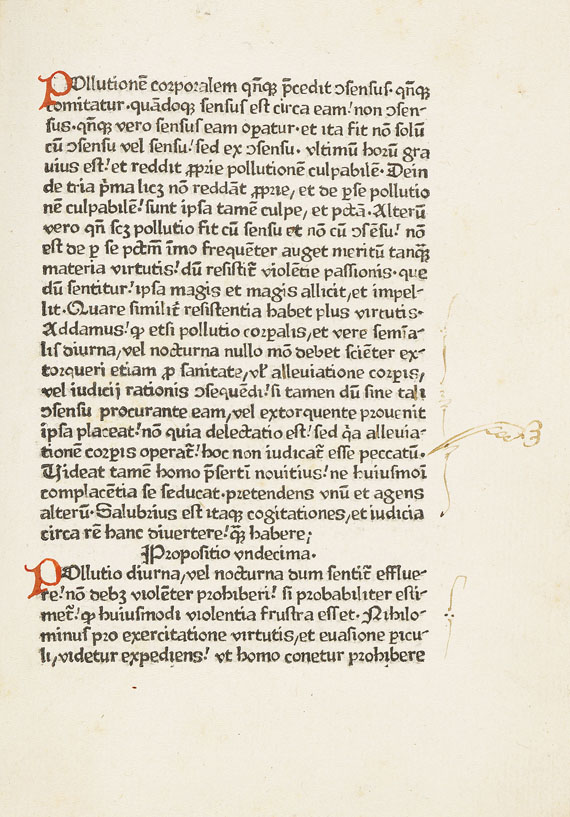 Pollutionē corporalem qñqꝫ p̄cedit ↄsensus· qñqꝫ
comitatur· quādoqꝫ sensus est circa eam! non ↄsen-
sus· qñqꝫ vero sensus eam opatur· et ita fit nō solū
cū ↄsensu vel sensu! sed ex ↄsensu· vltimū horū gra
uius est! et reddit ꝓprie pollutionē culpabilē· Dein
de tria p̄ma licꝫ nō reddāt ꝓprie, et de ꝑse pollutio
nē culpabilē! sunt ipsa tamē culpe, et pctā· Alterū
vero qñ scꝫ pollutio fit cū sensu et nō cū ↄsēsu! nō
est de ꝑ se pctm̄ īmo frequēter auget meritū tanqꝫ̄
materia virtutis! dū resistit̄ violētie passionis· que
dū sentitur! ipsa magis et magis allicit, et impel-
lit· Quare similit̄ resistentia habet plus virtutis·
Addamus! ꝙ etsi pollutio corꝑalis, et vere semīa-
lis diurna, vel nocturna nullo mō debet sciēter ex-
torqueri etiam ꝓ sanitate, vꝉ alleuiatione corꝑis,
vel iudicij rationis ↄsequēdi! si tamen dū sine tali
ↄsensu procurante eam, vel extorquente prouenit
ipsa placeat! nō quia delectatio est! sed q̇a alleuia-
tionē corꝑis operat̄! hoc non iudicat̄ esse peccatū·
Uideat tamē homo p̄serti nouitius! ne huiusmōi
complacētia se seducat· pretendens vnū et agens
alterū· Salubrius est itaqꝫ cogitationes, et iudicia
circa rē hanc diuertere! qꝫ̄ habere;
Propositio vndecima·
Pollutio diurna, vel nocturna dum sentit̄ efflue-
re! nō debꝫ violēter prohiberi! si probabiliter esti-
met̄! ꝙ huiusmodi violentia frustra esset· Nihilo-
minus pro exercitatione virtutis, et euasione ꝑicu-
li, videtur expediens! vt homo conetur prohibere